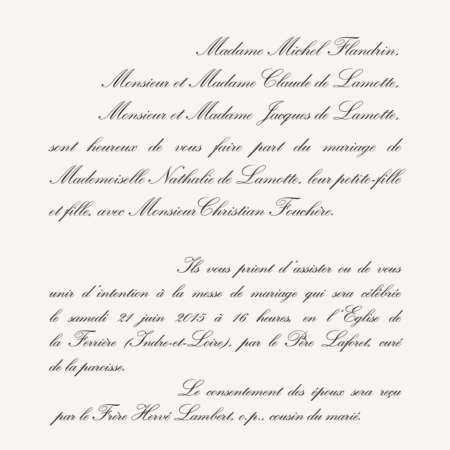 Madame Michel Flandrin,
Monsieur et Madame Claude de Lamotte,
Monsieur et Madame Jacques de Lamotte,
sont heureux de vous faire part du mariage de
Mademoiselle Nathalie de Lamotte, leur petite-fille
et fille, avec Monsieur Christian Fouchère.
Ils vous prient d'assister ou de vous
unir d'intention à la messe de mariage qui sera célébrée
le samedi 21 juin 2015 à 16 heures, en l'Eglise de
la Ferrière (Indre-et-Loire), par le Père Laforet, curé
de la paroisse.
Le consentement des époux sera reçu
par le Frère Hervé Lambert, o.p., cousin du marié.